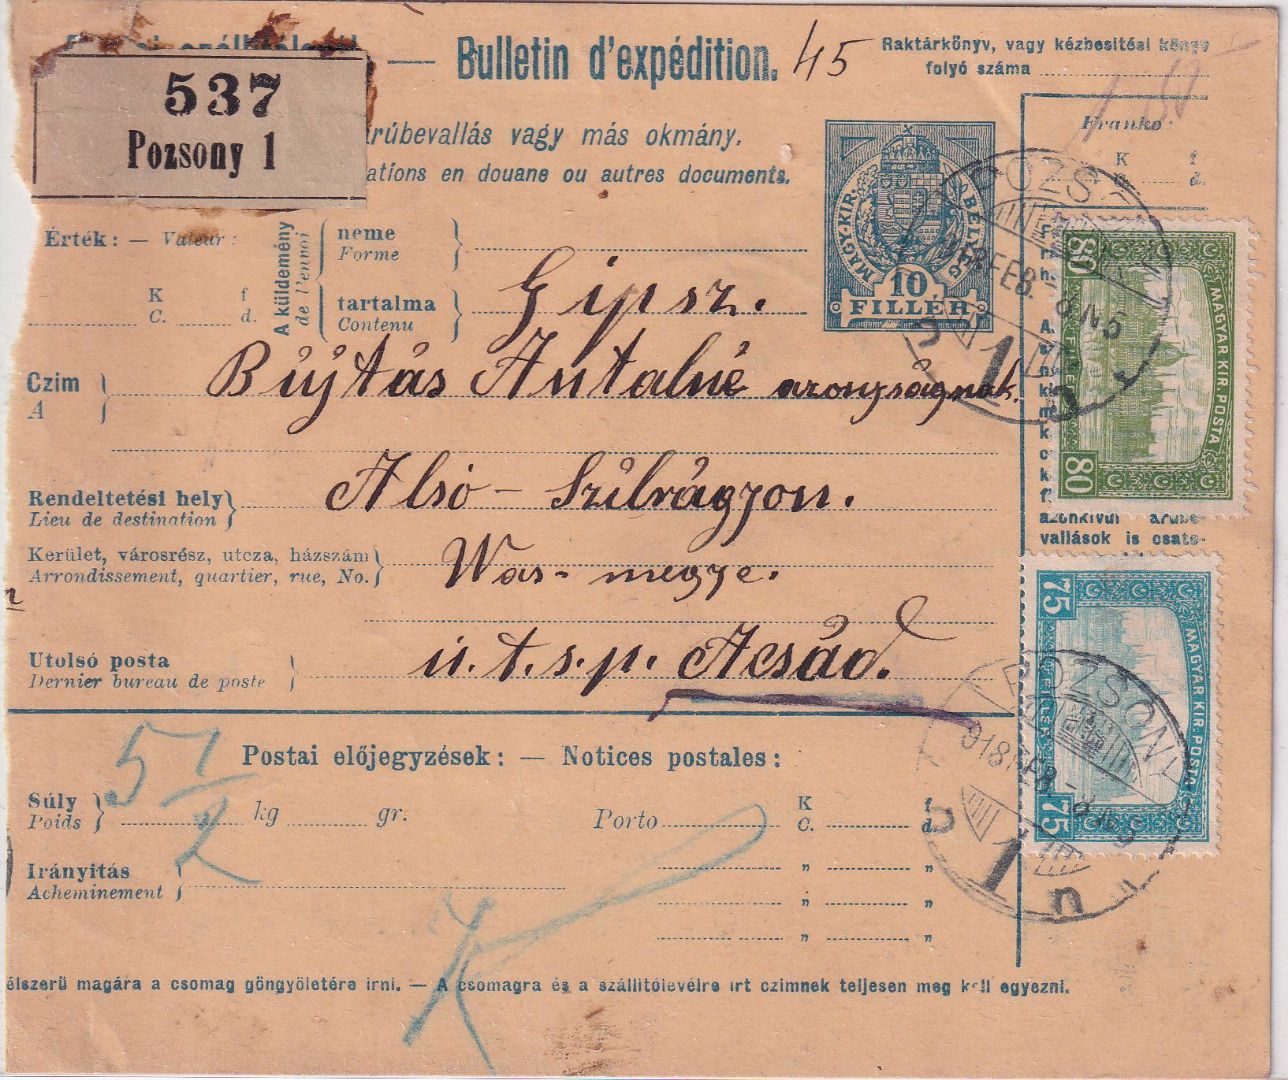 Bulletin d'expédition.
45
Raktárkönyv, vagy kézbesitési könyv
folyó száma
537
Pozsony 1
árúbevallás vagy más okmány.
ations en douane ou autres documents.
Franko:
K f
d.
Érték: — Valeur:
K f
C. d.
A küldemény
de l'envoi
neme
Forme
tartalma
Contenu
Gipsz.
MAGY. KIR. BÉLYEG
10
FILLÉR
POZSONY
918 FEB. -6 N5
1
80
MAGYAR KIR. POSTA
FILLÉR
80
Czim
A
Bujtás Antalné azonyságnak.
Rendeltetési hely
Lieu de destination
Alsó-Szilvágyon.
azonkivül árube-
vallások is csato-
Kerület, városrész, utcza, házszám
Arrondissement, quartier, rue, No.
Was-megye.
Utolsó posta
Dernier bureau de poste
u.t.s.p. Acsád.
75
MAGYAR KIR. POSTA
FILLÉR
75
POZSONY
918 FEB. -6 N5
1
n
Postai előjegyzések: — Notices postales:
5 1/2
Súly
Poids
kg gr.
Porto
K f
C. d.
Irányitás
Acheminement
" "
" "
" "
élszerű magára a csomag göngyöletére irni. — A csomagra és a szállitólevélre irt czimnek teljesen meg kell egyezni.